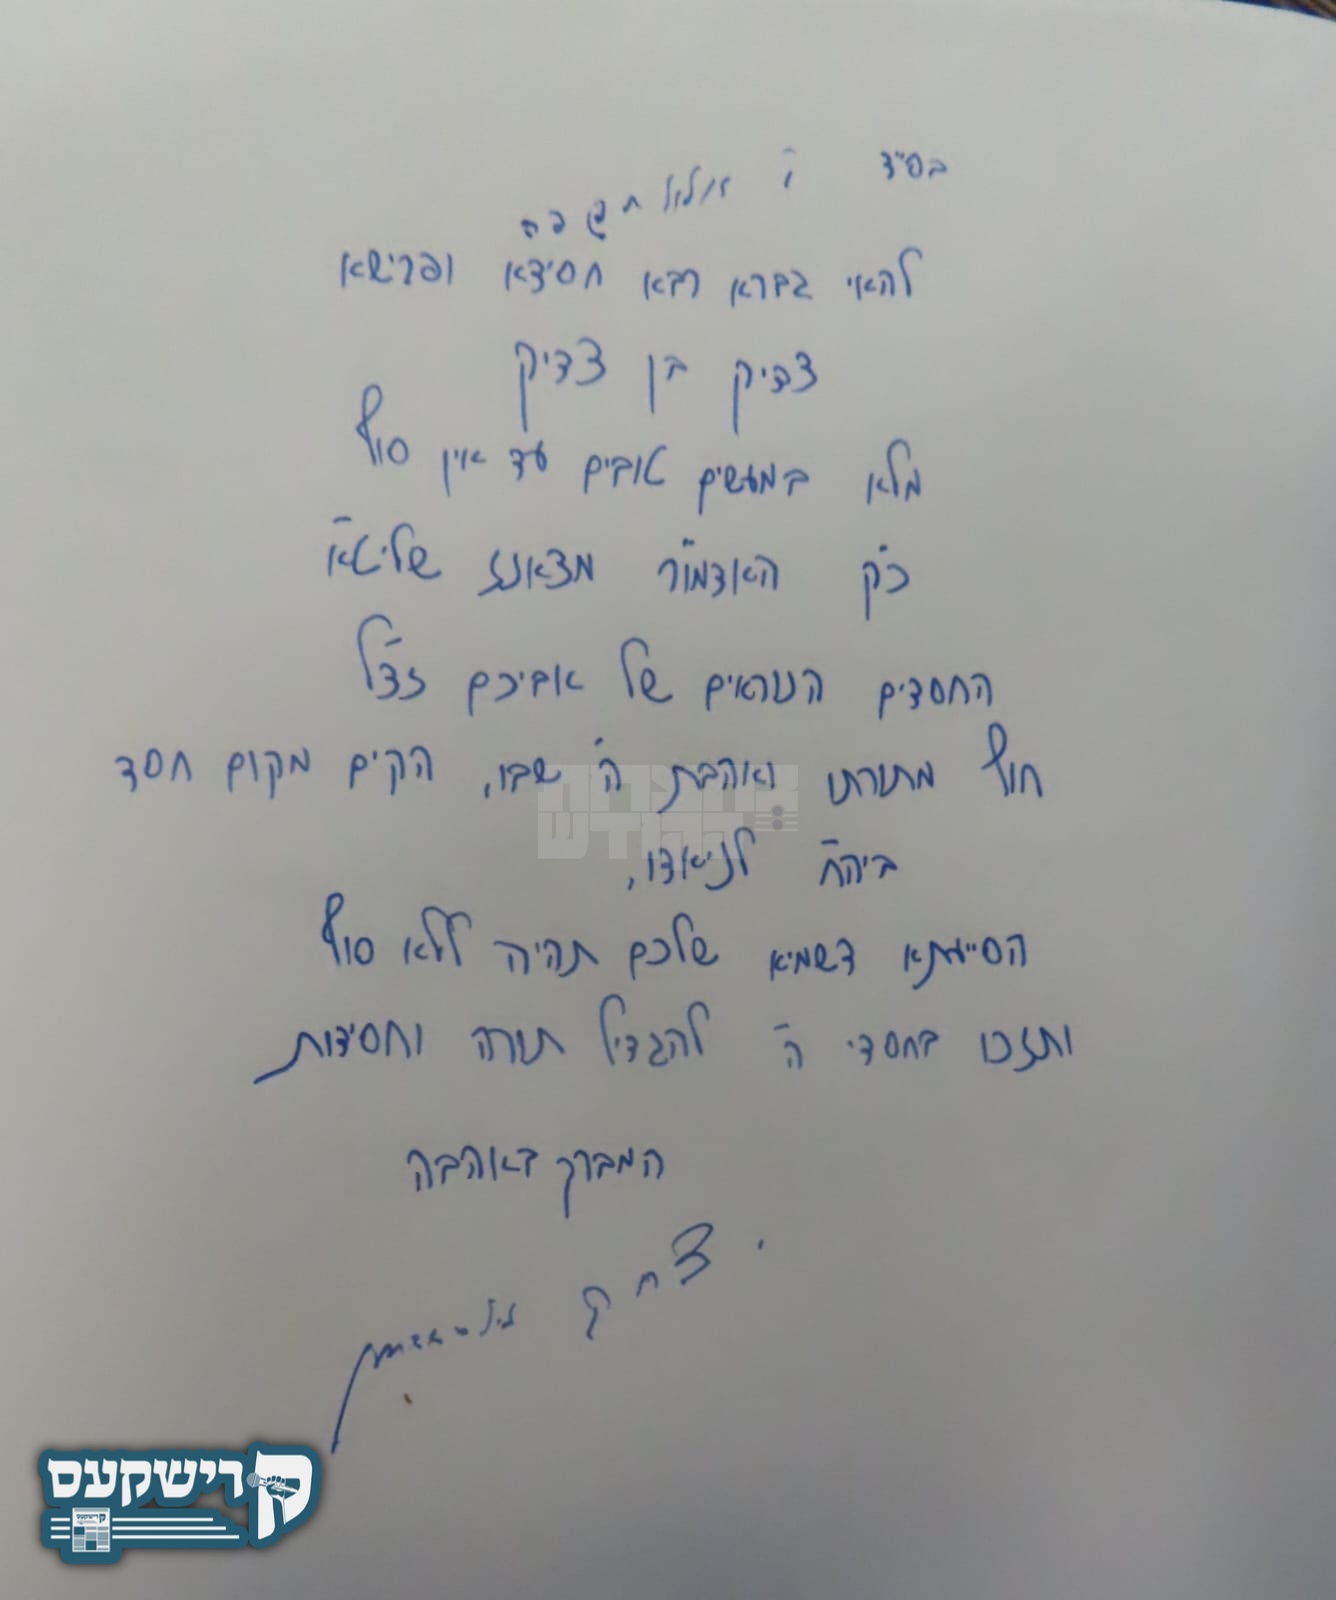 בס"ד ו' אלול תשפה
להאי גברא רבא חסידא ופרישא
צדיק בן צדיק
מלא במעשים טובים עד אין סוף
כ"ק האדמו"ר מצאנז שליט"א
החסדים הנוראים של אביכם זצ"ל
חוץ מתורתו ואהבת ה' שבו, הקים מקום חסד
ביה"ח לניאדו,
הסייעתא דשמיא שלכם תהיה ללא סוף
ותזכו בחסדי ה' להגדיל תורה וחסידות
המברך באהבה
יצחק
קרישקעס